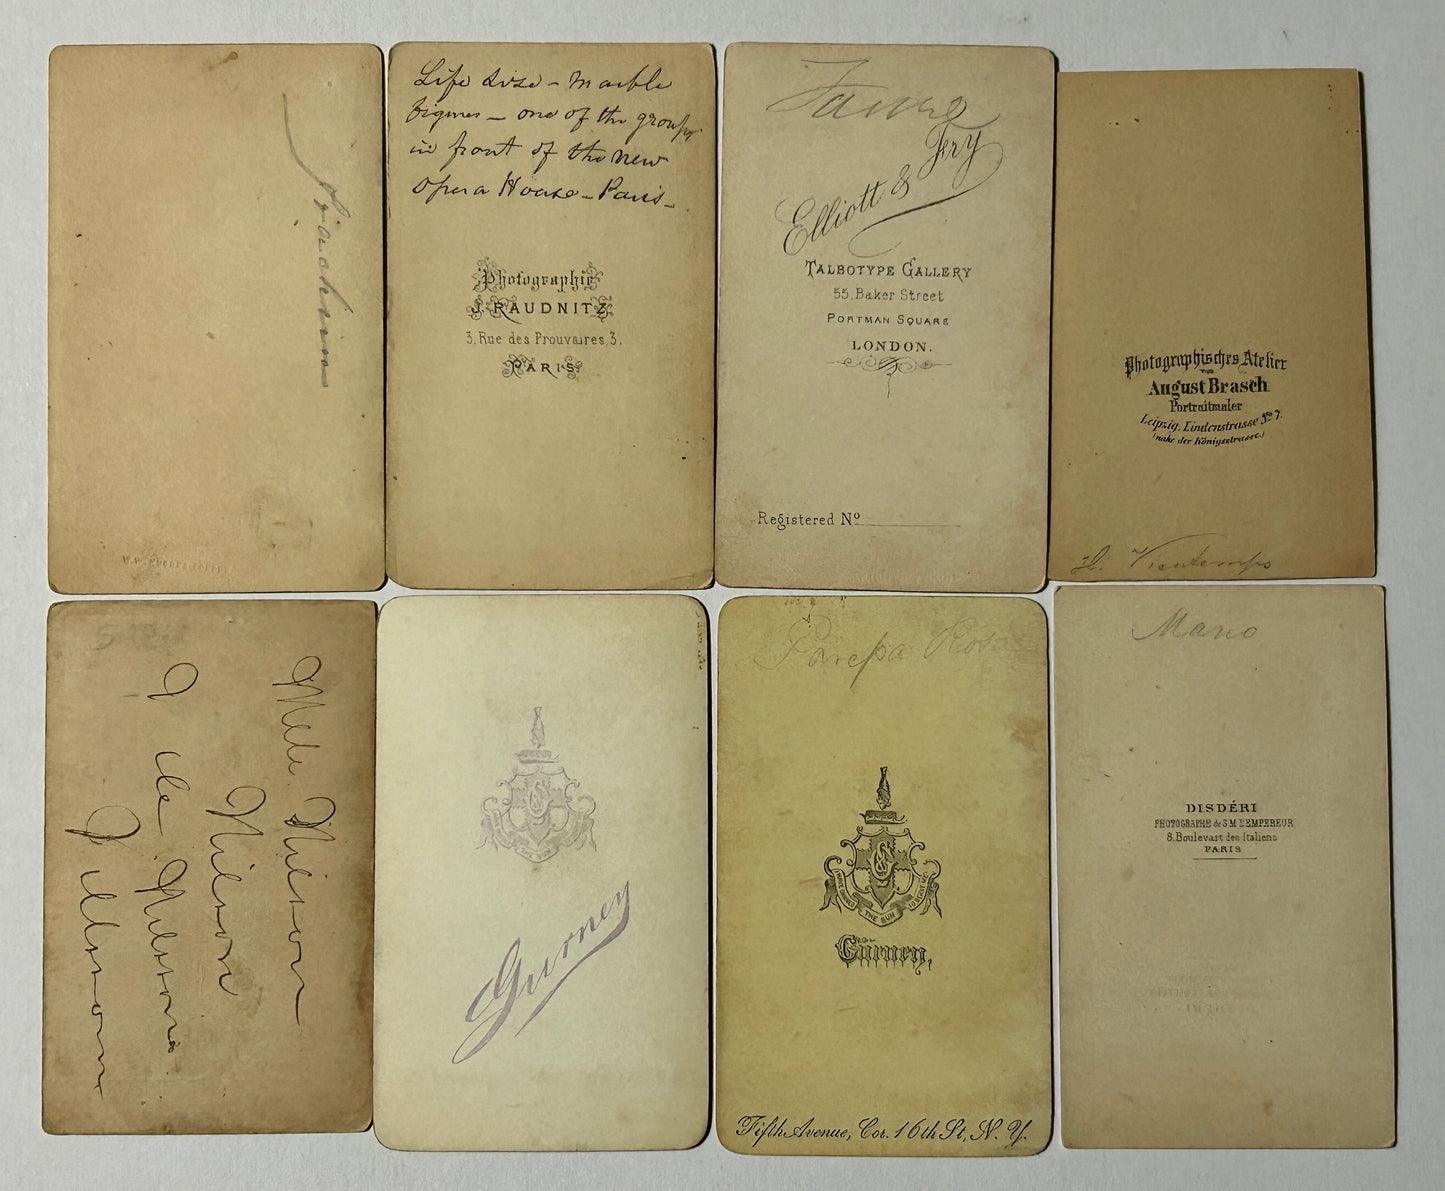 Joachim
Life size - Marble
figures - one of the groups
in front of the new
Opera House - Paris -
Photographie
J. RAUDNITZ
3, Rue des Prouvaires, 3.
PARIS.
Elliott & Fry
TALBOTYPE GALLERY
55, Baker Street
PORTMAN SQUARE
LONDON.
Registered Nº
Photographisches Atelier
von
August Brasch
Portraitmaler
Leipzig, Lindenstrasse No 7.
(nahe der Königsstrasse.)
H. Vieutemps
Mlle Nilson
Nilson
Gurney
Parepa Rosa
THE SUN
Gurney,
Fifth Avenue, Cor. 16th St, N. Y.
Mario
DISDÉRI
PHOTOGRAPHE de S.M. L'EMPEREUR
8, Boulevart des Italiens
PARIS